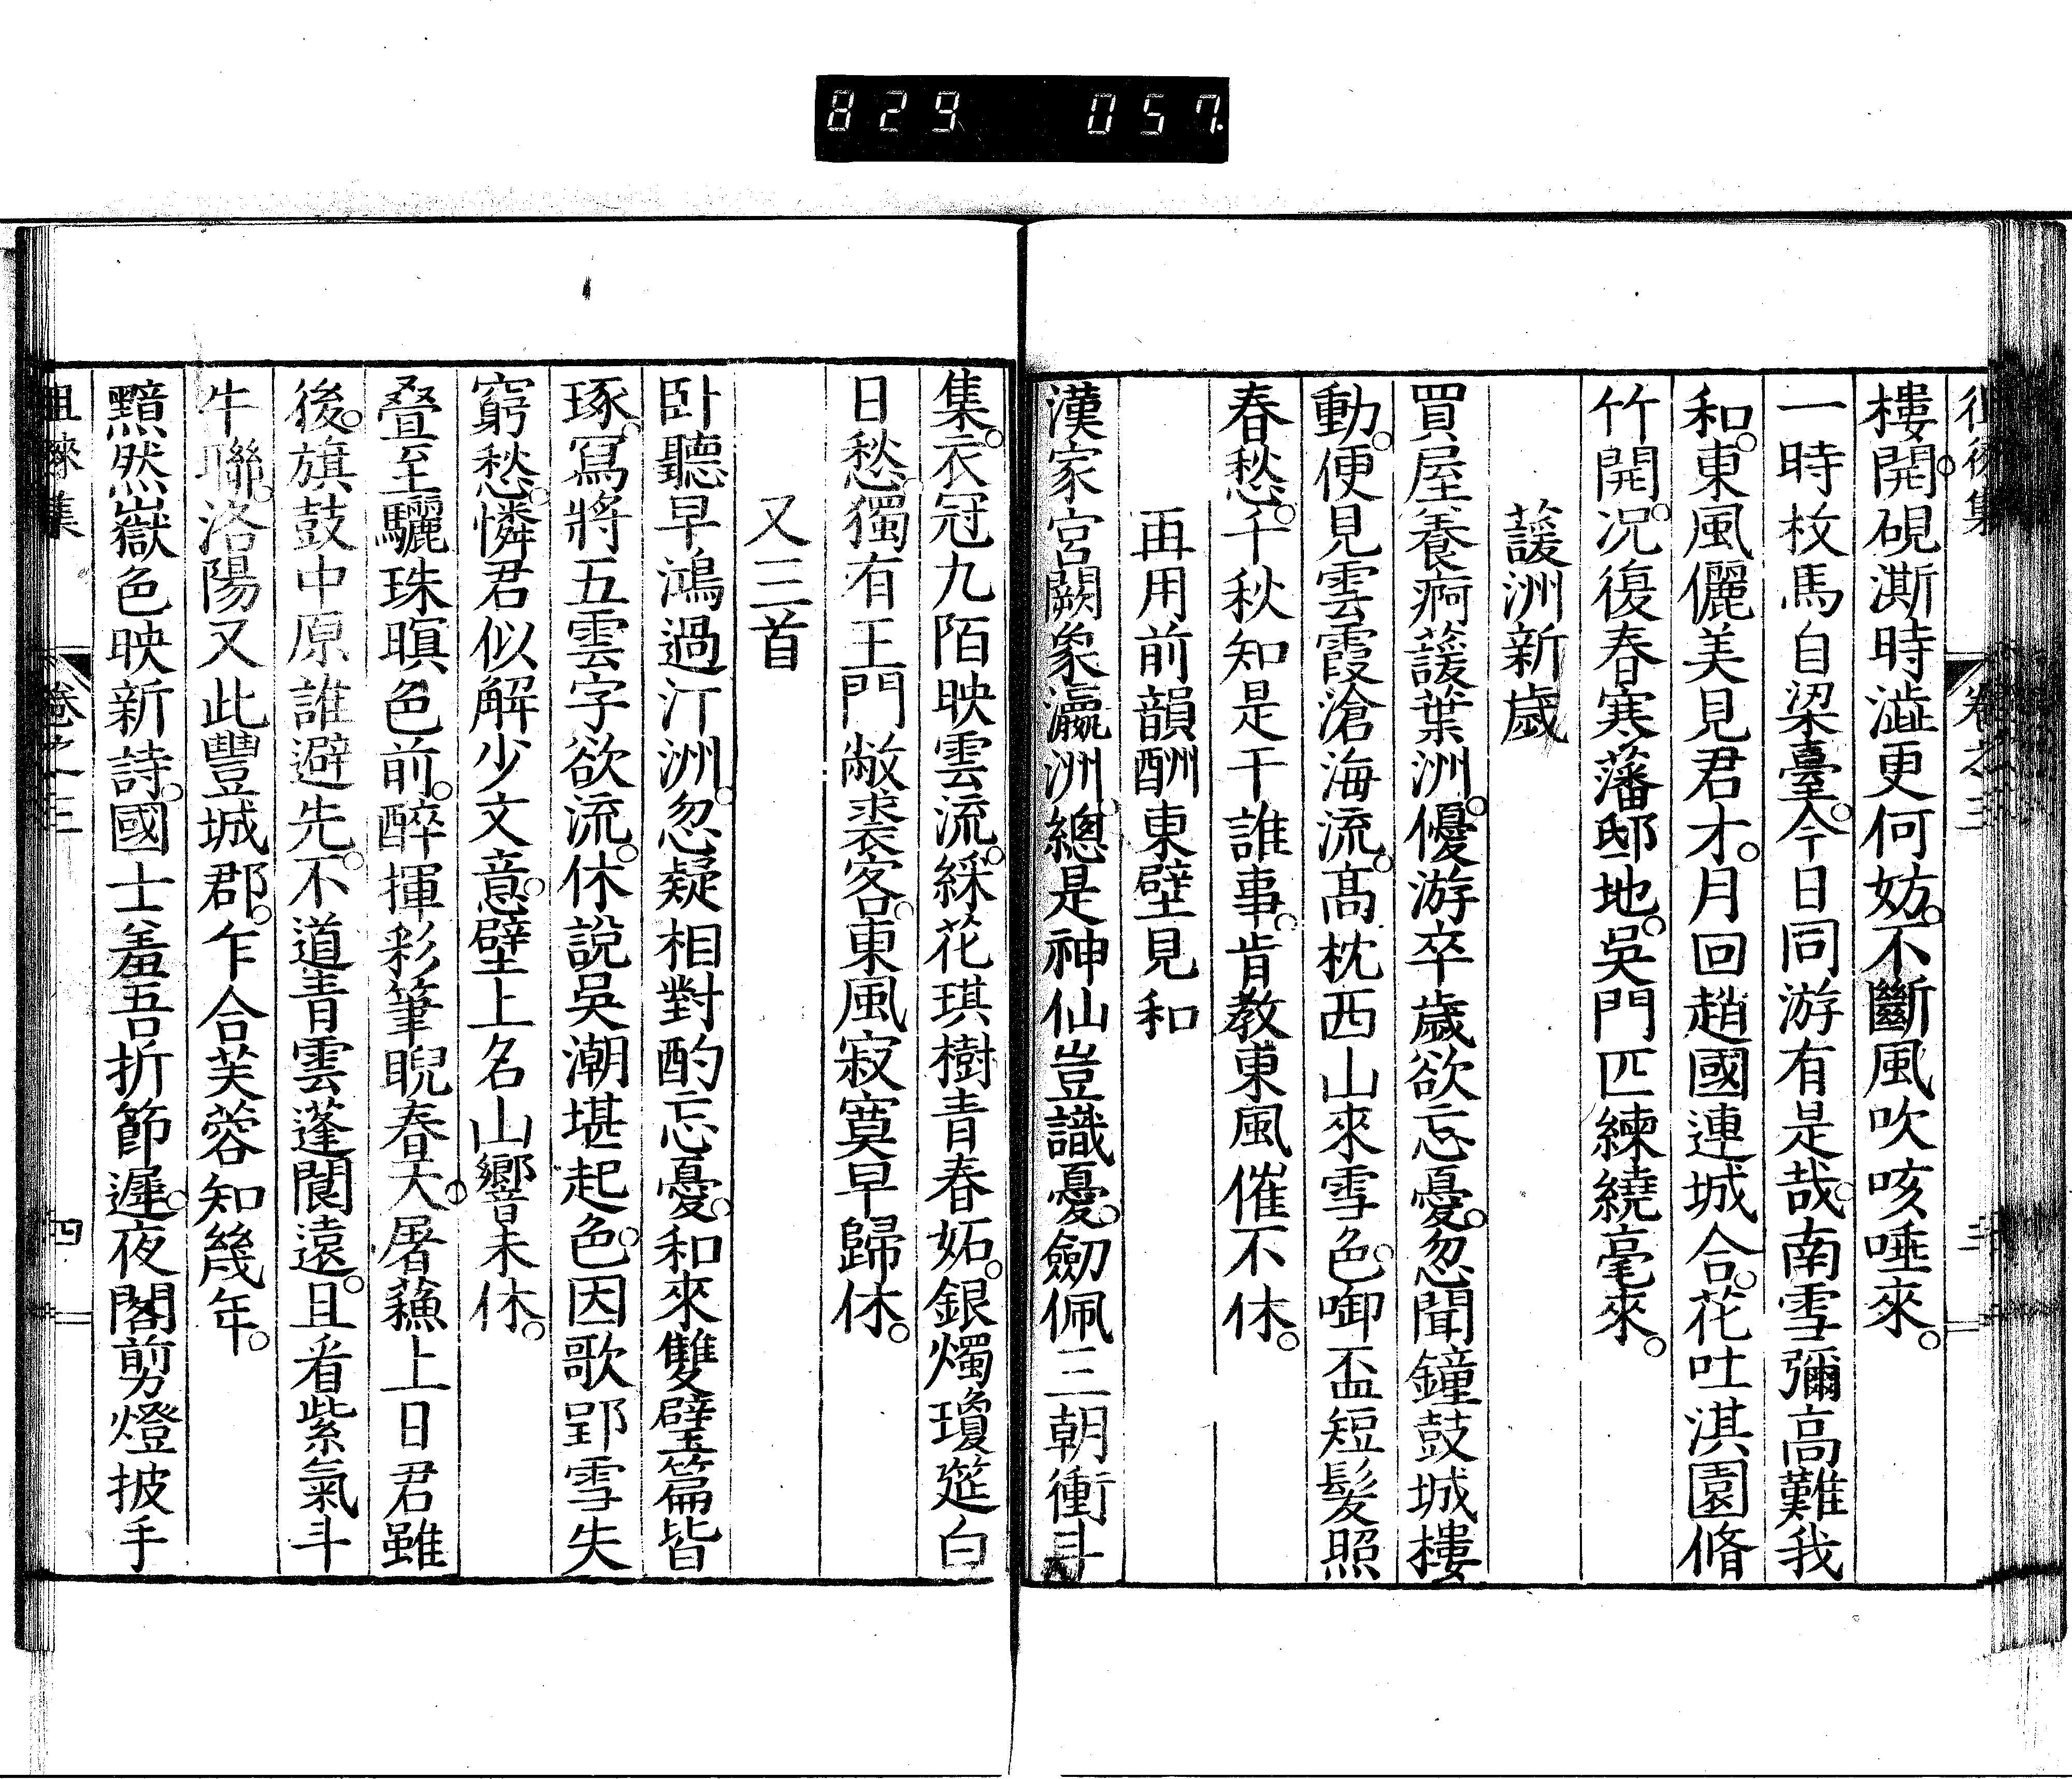 829 057.
徂徠集 卷之三
樓開。硯澌時澁更何妨。不斷風吹咳唾來。
一時枚馬自梁臺。今日同游有是哉。南雪彌高難我
和。東風儷美見君才。月回趙國連城合。花吐淇園脩
竹開。况復春寒藩邸地。吳門匹練繞毫來。
蘐洲新歲
買屋養痾蘐葉洲。優游卒歲欲忘憂。忽聞鐘鼓城樓
動。便見雲霞滄海流。高枕西山來雪色。啣盃短髮照
春愁。千秋知是干誰事。肯教東風催不休。
再用前韻酬東壁見和
漢家宮闕象瀛洲。總是神仙豈識憂。劒佩三朝衝斗
集。衣冠九陌映雲流。綵花琪樹青春妬。銀燭瓊筵白
日愁。獨有王門敝裘客。東風寂寞早歸休。
又三首
卧聽早鴻過汀洲。忽疑相對酌忘憂。和來雙璧篇皆
琢。寫將五雲字欲流。休說吳潮堪起色。因歌郢雪失
窮愁。憐君似解少文意。壁上名山響未休。
叠至驪珠暝色前。醉揮彩筆睨春天。屠蘓上日君雖
後。旗鼓中原誰避先。不道青雲蓬閬遠。且看紫氣斗
牛聯。洛陽又此豐城郡。乍合芙蓉知幾年。
黯然嶽色映新詩。國士羞吾折節遲。夜閣剪燈披手
徂徠集 卷之三 四